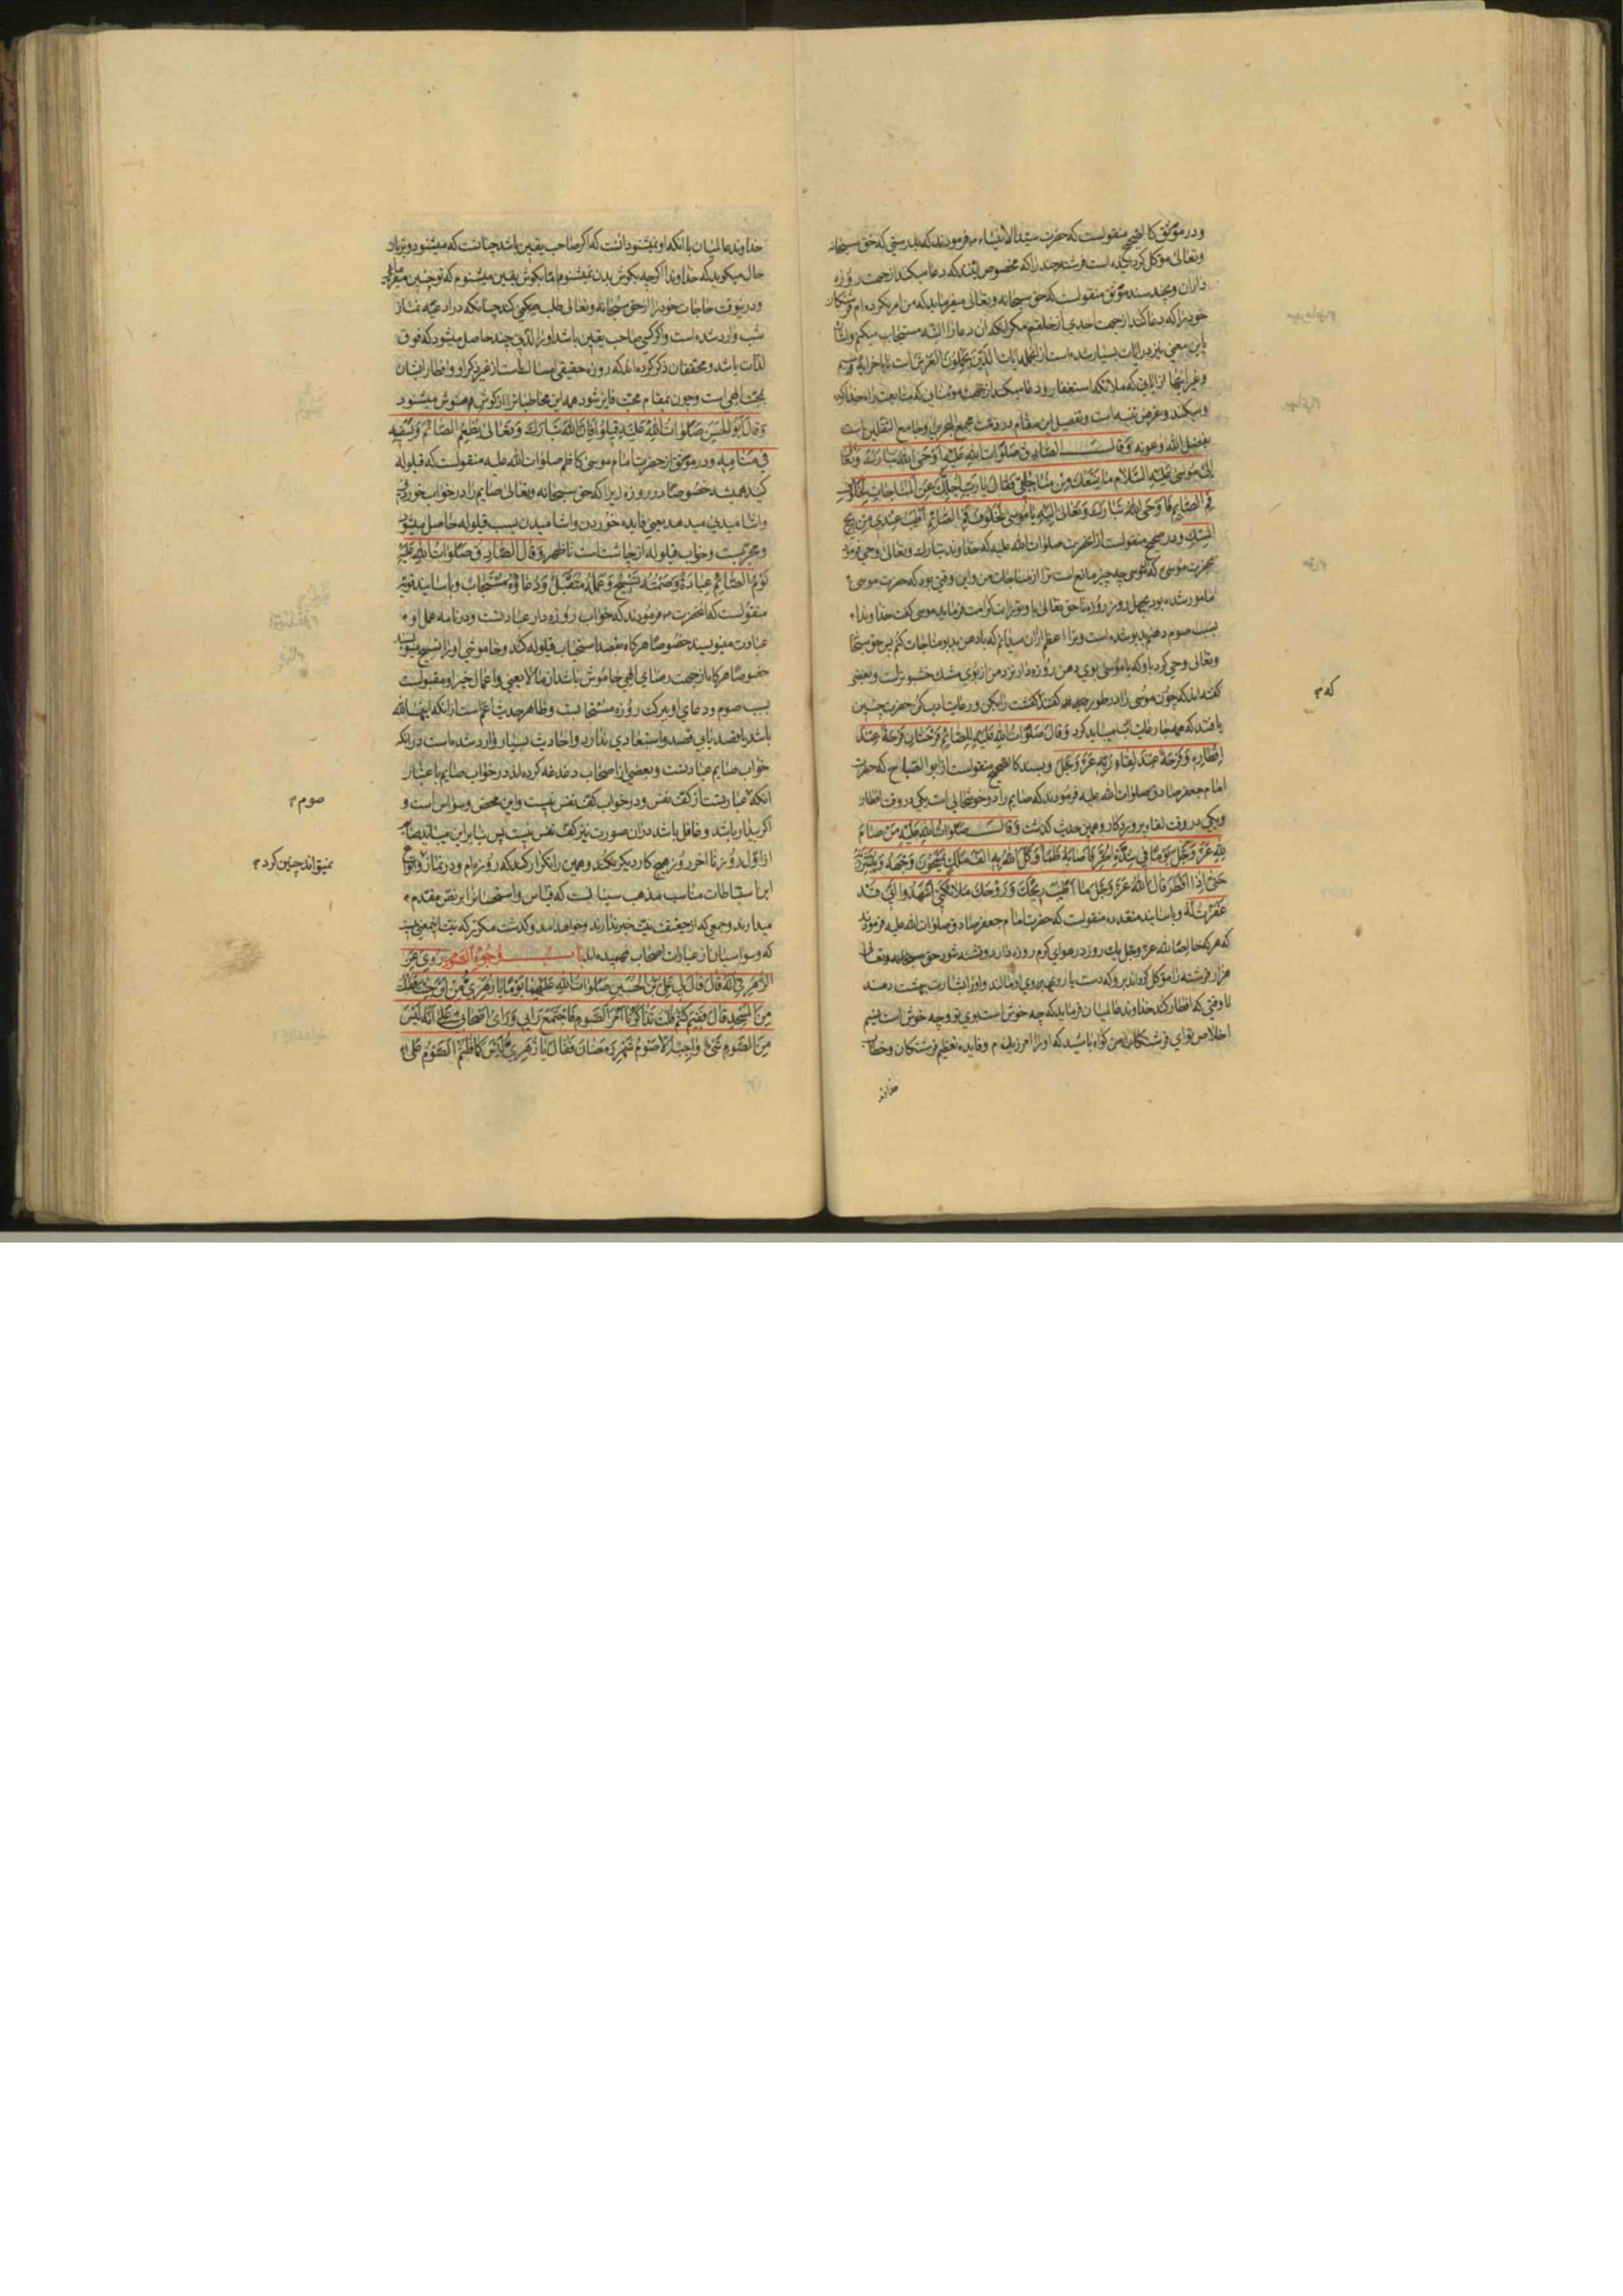 ودر موثق کالصحیح منقولست که حضرت سید الانبیاء ص فرمودند که بدرستی که حق سبحانه
وتعالی موکل کردانیده است فرشته چند را که مخصوص ایشانند که دعا میکنند از جهت روزه
داران وبچند سند موثق منقولست که حق سبحانه وتعالی میفرماید که من امر نکرده ام فرشتکان
خود را که دعا کنند از جهت احدی از خلقم مکر آنکه آن دعا را البته مستجاب میکنم
باین معنی نیز در آیات بسیار شده است از آنجمله آیات الذین یحملون العرش است تا باخر آیه
وغیر اینها از آیاتی که ملائکه استغفار ودعا میکنند از جهت مومنانی که متابعت راه خدا کرده
ومیکنند وغرض تنبیه است وتفصیل این مقام در مجمع البحرین وجامع الثقلین است
بفضل الله وعونه وَقالَ الصّادِقُ صَلَواتُ اللهِ عَلَیْهِ اَوْحَی اللهُ تَبارَکَ وَتَعالی
اِلی مُوسی عَلَیْهِ السَّلامُ ما یَمْنَعُکَ مِنْ مُناجاتی فَقالَ یا رَبِّ اُجِلُّکَ عَنِ الْمُناجاتِ لِخُلُوفِ
فَمِ الصّایِمِ فَاَوْحَی اللهُ تَبارَکَ وَتَعالی اِلَیْهِ یا مُوسی لَخُلُوفُ فَمِ الصّائِمِ اَطْیَبُ عِنْدی مِنْ ریحِ
الْمِسْکِ ودر صحیح منقولست از آنحضرت صلوات الله علیه که خداوند تبارک وتعالی وحی فرمود
بحضرت موسی ع که ای موسی چه چیز مانع است ترا از مناجات من واین وقتی بود که حضرت موسی ع
مامور شده بود بچهل روز روزه تا حق تعالی باو تورات کرامت فرماید موسی کفت خداوندا
بسبب صوم دهنم بدبو شده است وترا اعظم ازان میدانم که با دهن بدبو مناجات کنم پس حق سبحانه
وتعالی وحی کرد باو که یا موسی بوی دهن روزه دار نزد من از بوی مشک خشبوتر است وبعضی
کفته اند که چون موسی را در طور کفتند کفشت را بکن ورعایت ادب کن حضرت چنین
که ص
یافتند که همه جا رعایت ادب میباید کرد وَقالَ صَلَواتُ اللهِ عَلَیْهِ لِلصّائِمِ فَرْحَتانِ فَرْحَةٌ عِنْدَ
اِفْطارِهِ وَفَرْحَةٌ عِنْدَ لِقاءِ رَبِّهِ عَزَّ وَجَلَّ وبسند کالصحیح منقولست از ابو الصباح که حضرت
امام جعفر صادق صلوات الله علیه فرمودند که صایم را دو خوشحالی است یکی در وقت افطار
ویکی در وقت لقاء پروردکار وهمین حدیث کذشت وَقالَ صَلَواتُ اللهِ عَلَیْهِ مَنْ صامَ
لِلّهِ عَزَّ وَجَلَّ یَوْمًا فی شِدَّةِ الْحَرِّ فَاَصابَهُ ظَمَأٌ وَکَّلَ اللهُ بِهِ اَلْفَ مَلَکٍ یَمْسَحُونَ وَجْهَهُ وَیُبَشِّرُونَهُ
حَتّی اِذا اَفْطَرَ قالَ اللهُ عَزَّ وَجَلَّ ما اَطْیَبَ ریحَکَ وَرَوْحَکَ مَلائِکَتی اشْهَدُوا اَنّی قَدْ
غَفَرْتُ لَهُ وباسانید متعدده منقولست که حضرت امام جعفر صادق صلوات الله علیه فرمودند
که هر که خالصا لله عز وجل یک روز در هوای کرم روزه دارد وتشنه شود حق سبحانه وتعالی
هزار فرشته را موکل کرداند برو که دست بارو بر روی او مالند واو را بشارت بهشت دهند
تا وقتی که افطار کند خداوند عالمیان فرماید که چه خوش است بوی تو وچه خوش است نسیم
اخلاص تو ای فرشتکان من کواه باشید که او را آمرزیدم وفایده تعظیم فرشتکان وخطاب
خداوند
خداوند عالمیان با آنکه او نمیشنود آنست که اکر صاحب یقین باشد چنانست که میشنود وبزبان
حال میکوید که خداوندا اکر چه بکوش بدن نمیشنوم اما بکوش یقین میشنوم که تو چنین میفرمائی
ودرینوقت حاجات خود را از حق سبحانه وتعالی طلب میکند چنانکه در ادعیه نماز
شب وارد شده است واکر کسی صاحب یقین باشد او را لذتی چند حاصل میشود که فوق
لذات باشد ومحققان ذکر کرده اند که روزه حقیقی امساک است از غیر ذکر او وافطار ایشان
بمحبت الهی است وچون بمقام محبت فایز شود همه این مخاطبات را از کوش هوش میشنود
وَقالَ اَبُو الْحَسَنِ صَلَواتُ اللهِ عَلَیْهِ قیلُوا فَاِنَّ اللهَ تَبارَکَ وَتَعالی یُطْعِمُ الصّائِمَ وَیَسْقیهِ
فی مَنامِهِ ودر موثق از حضرت امام موسی کاظم صلوات الله علیه منقولست که قیلوله
کنید همیشه خصوصا در روزه زیرا که حق سبحانه وتعالی صایم را در خواب خوردنی
واشامیدنی میدهد یعنی فایده خوردن واشامیدن بسبب قیلوله حاصل میشود
ومجربست وخواب قیلوله از چاشت است تا ظهر وَقالَ الصّادِقُ صَلَواتُ اللهِ عَلَیْهِ
نَوْمُ الصّائِمِ عِبادَةٌ وَصَمْتُهُ تَسْبیحٌ وَعَمَلُهُ مُتَقَبَّلٌ وَدُعاؤُهُ مُسْتَجابٌ وباسانید قویه
منقولست که آنحضرت ص فرمودند که خواب روزه دار عبادتست ودر نامه عمل او
عبادت مینویسند خصوصا هرکاه بقصد استحباب قیلوله کند وخاموشی او را تسبیح مینویسند
خصوصا هرکاه از جهت رضای الهی خاموش باشد از مالایعنی واعمال خیر او مقبولست
بسبب صوم ودعای او ببرکت روزه مستجابست وظاهر حدیث اعم است از آنکه اینها لله
باشد یا قصد یا بی قصد واستبعادی ندارد واحادیث بسیار وارد شده است در آنکه
خواب صایم عبادتست وبعضی از اصحاب دغدغه کرده اند در خواب صایم باعتبار
آنکه عبارتست از کف نفس ودر خواب کف نفس نیست واین محض وسواس است و
صوم ص
اکر بیدار باشد وغافل باشد دران صورت نیز کف نفس نیست پس بنابراین میباید صایم
از اول روز تا آخر روز هیچ کار دیکر نکند وهمین را تکرار کند که روزه ام ودر نماز
نمیتواند چنین کرد ص
این اسقاطات مناسب مذهب سنیانست که قیاس واستحسان را بر نص مقدم
میدارند وجمعی که از حقیقت نیت خبر ندارند وخواهد آمد وکذشت مکرر که نیت
که وسواسیان از عبارات اصحاب فهمیده اند بابُ وُجُوهِ الصَّوْمِ رُوِیَ عَنِ
الزُّهْرِیِّ اَنَّهُ قالَ قالَ لی عَلِیُّ بْنُ الْحُسَیْنِ صَلَواتُ اللهِ عَلَیْهِما یَوْمًا یا زُهْرِیُّ مِنْ اَیْنَ جِئْتَ فَقُلْتُ
مِنَ الْمَسْجِدِ قالَ فَفیمَ کُنْتُمْ قُلْتُ تَذاکَرْنا اَمْرَ الصَّوْمِ فَاجْتَمَعَ رَأْیی وَرَأْیُ اَصْحابی عَلی اَنَّهُ لَیْسَ
مِنَ الصَّوْمِ شَیْءٌ واجِبٌ اِلّا صَوْمُ شَهْرِ رَمَضانَ فَقالَ یا زُهْرِیُّ لَیْسَ کَما قُلْتُمْ الصَّوْمُ عَلی